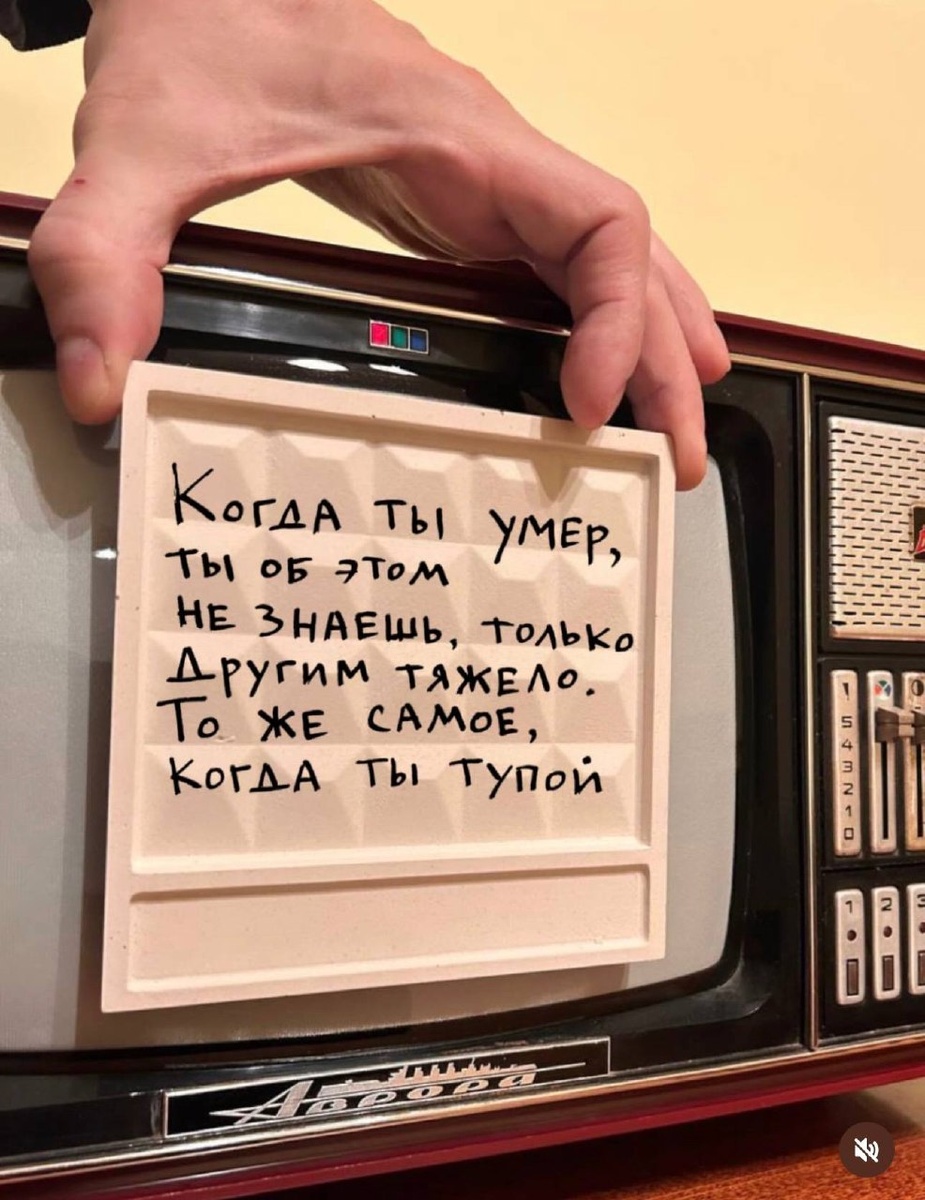 Когда ты умер,
ты об этом
не знаешь, только
другим тяжело.
То же самое,
когда ты тупой
1
5
4
3
2
1
0
1 2 3
Аврора